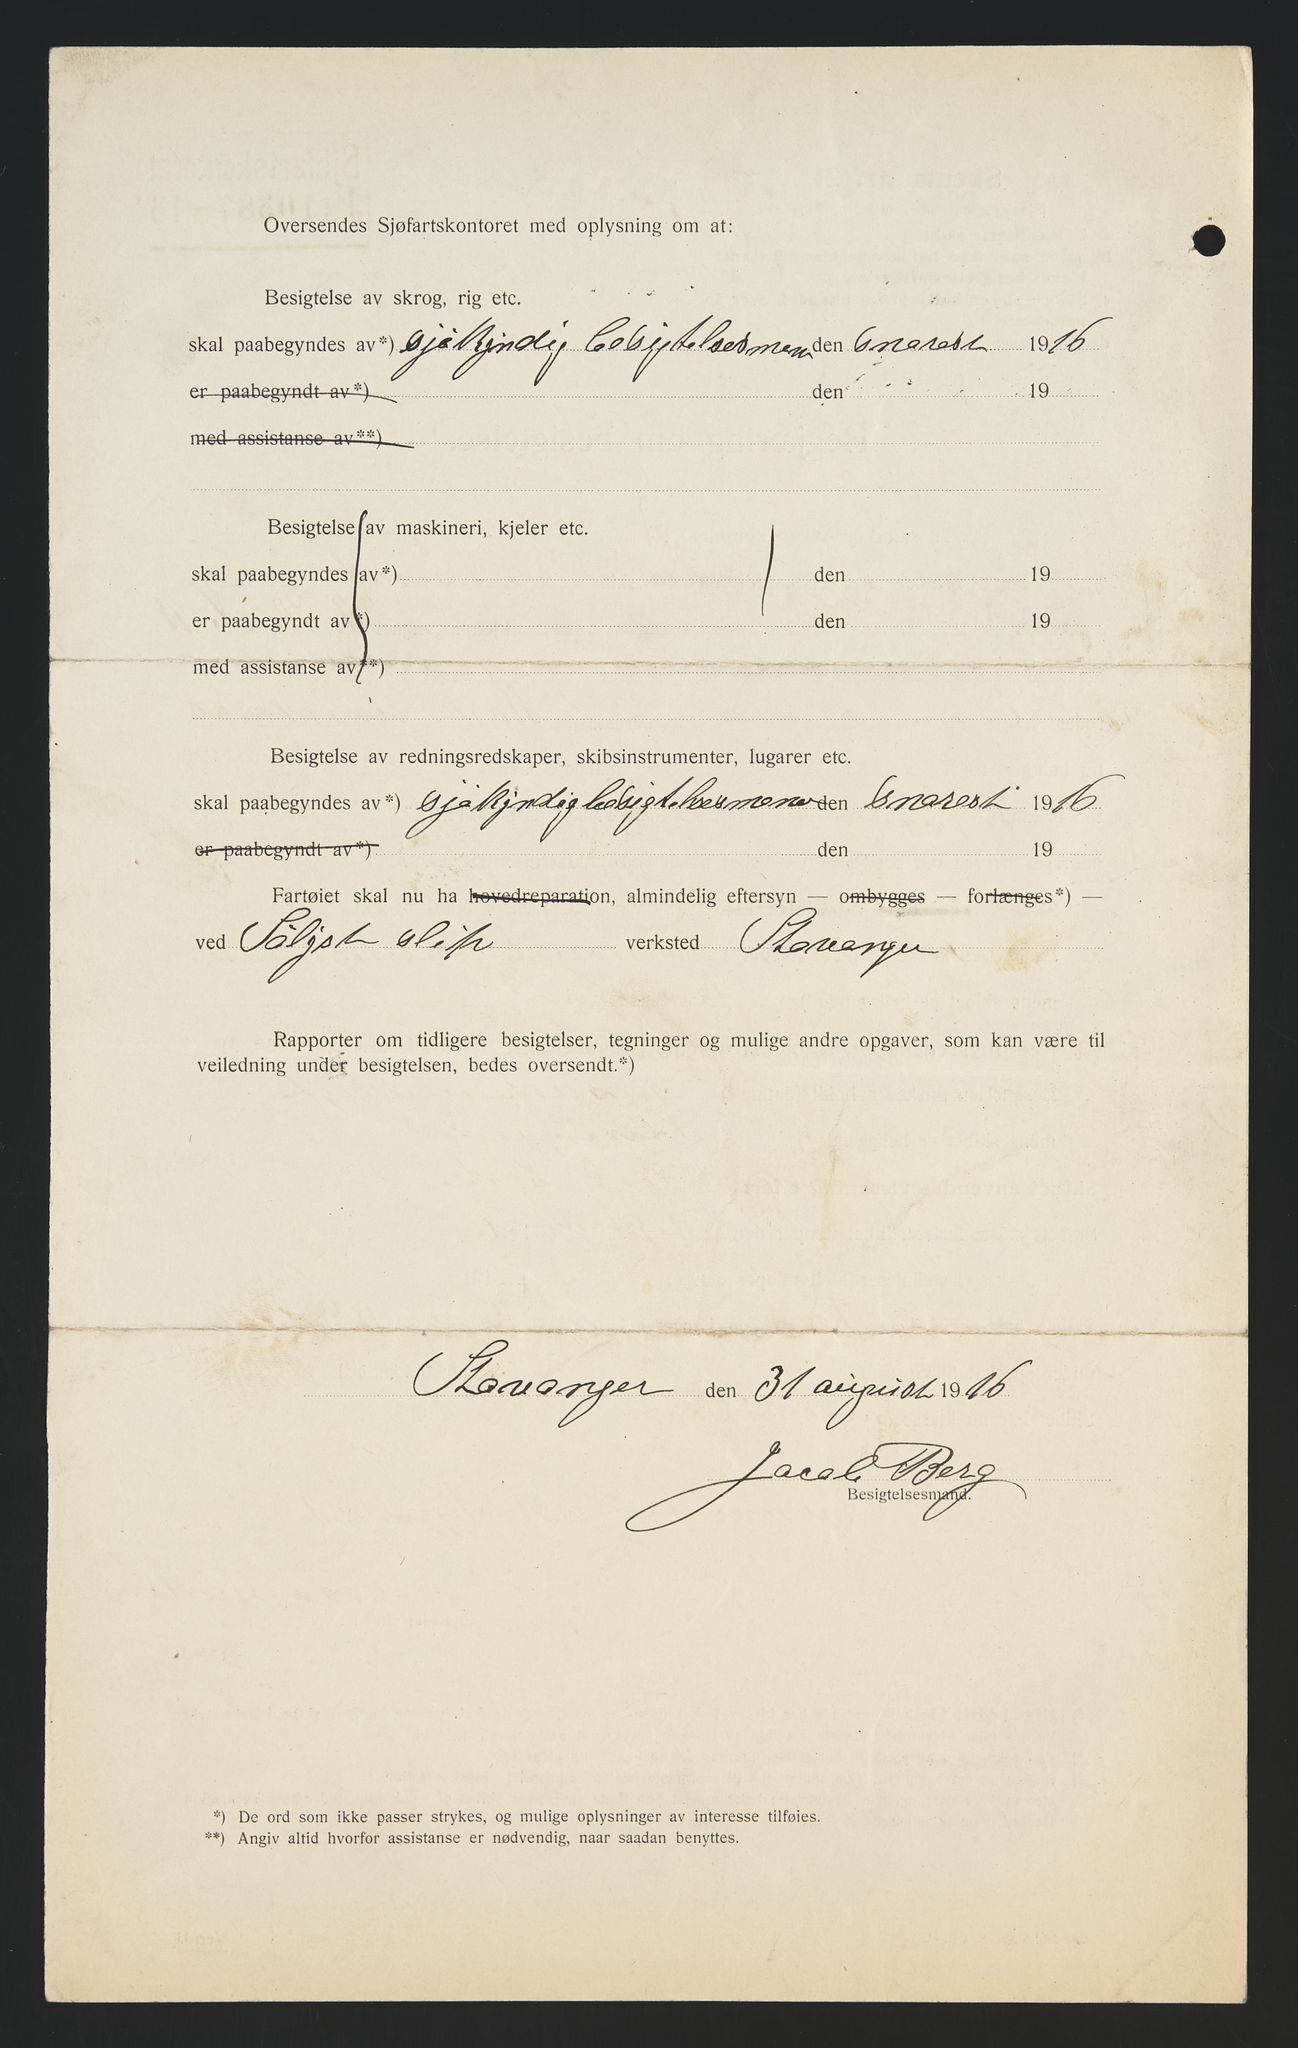 Oversendes Sjøfartskontoret med oplysning om at:
Besigtelse av skrog, rig etc.
skal paabegyndes av*) sjökyndig besigtelsesmenn den snarest 1916
er paabegyndt av*) den 19
med assistanse av**)
Besigtelse av maskineri, kjeler etc.
skal paabegyndes av*) den 19
er paabegyndt av*) den 19
med assistanse av**)
Besigtelse av redningsredskaper, skibsinstrumenter, lugarer etc.
skal paabegyndes av*) sjökyndig besigtelsesmenn den snarest 1916
er paabegyndt av*) den 19
Fartøiet skal nu ha hovedreparation, almindelig eftersyn — ombygges — forlænges*) —
ved Sölyst slip verksted Stavanger
Rapporter om tidligere besigtelser, tegninger og mulige andre opgaver, som kan være til
veiledning under besigtelsen, bedes oversendt.*)
Stavanger den 31 august 1916
Jacob Berg
Besigtelsesmand.
*) De ord som ikke passer strykes, og mulige oplysninger av interesse tilføies.
**) Angiv altid hvorfor assistanse er nødvendig, naar saadan benyttes.